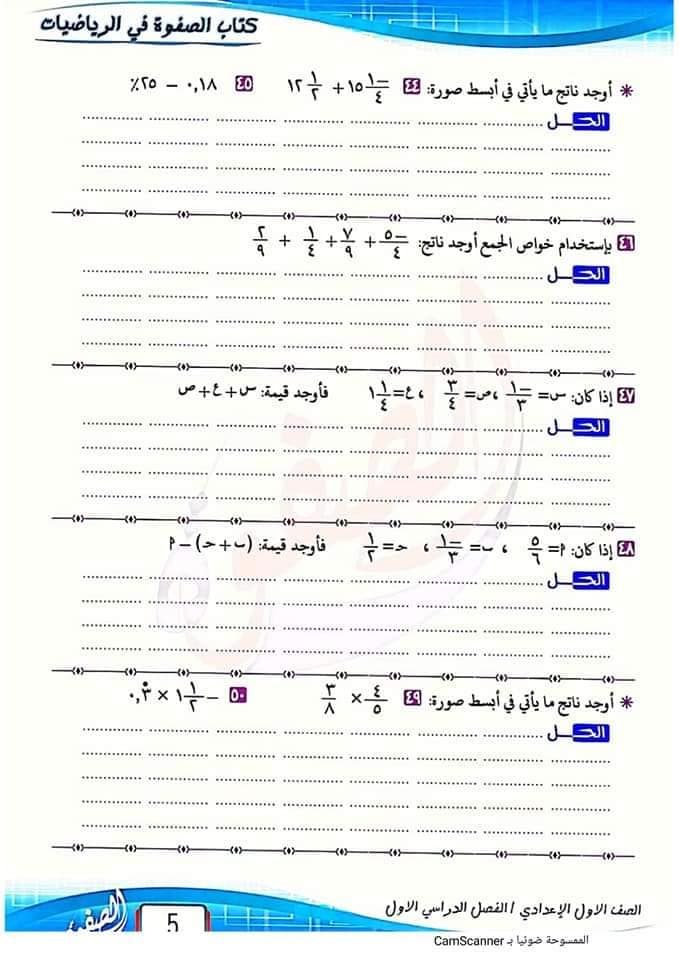 كتاب الصفوة في الرياضيات
* أوجد ناتج ما يأتي في أبسط صورة: ٤٤ −١/٤ ١٥ + ١/٢ ١٢ ٤٥ ٠,١٨ − ٢٥٪
الحـــل
٤٦ بإستخدام خواص الجمع أوجد ناتج: −٥/٤ + ٧/٩ + ١/٤ + ٢/٩
الحـــل
٤٧ إذا كان: س = −١/٣ ، ص = ٣/٤ ، ع = ١/٤ ١ فأوجد قيمة: س + ع + ص
الحـــل
٤٨ إذا كان: ٩ = ٥/٦ ، ب = −١/٣ ، حـ = ١/٢ فأوجد قيمة: (ب + حـ) − ٩
الحـــل
* أوجد ناتج ما يأتي في أبسط صورة: ٤٩ ٤/٥ × ٣/٨ ٥٠ − ١/٢ ١ × ٠,٣̇
الحـــل
الصف الاول الإعدادي / الفصل الدراسي الاول
5
الصفوة
الممسوحة ضوئيا بـ CamScanner